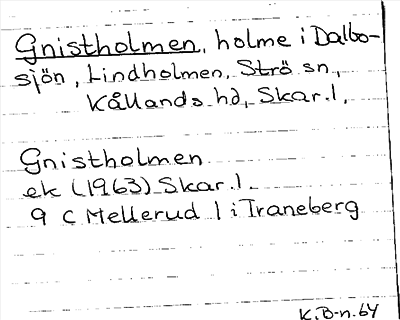 Gnistholmen, holme i Dalbo-
sjön, Lindholmen, Strö sn,
Kållands hd, Skar.l.
Gnistholmen
ek (1963) Skar.l.
9 C Mellerud 1 i Traneberg
K.B-n.64